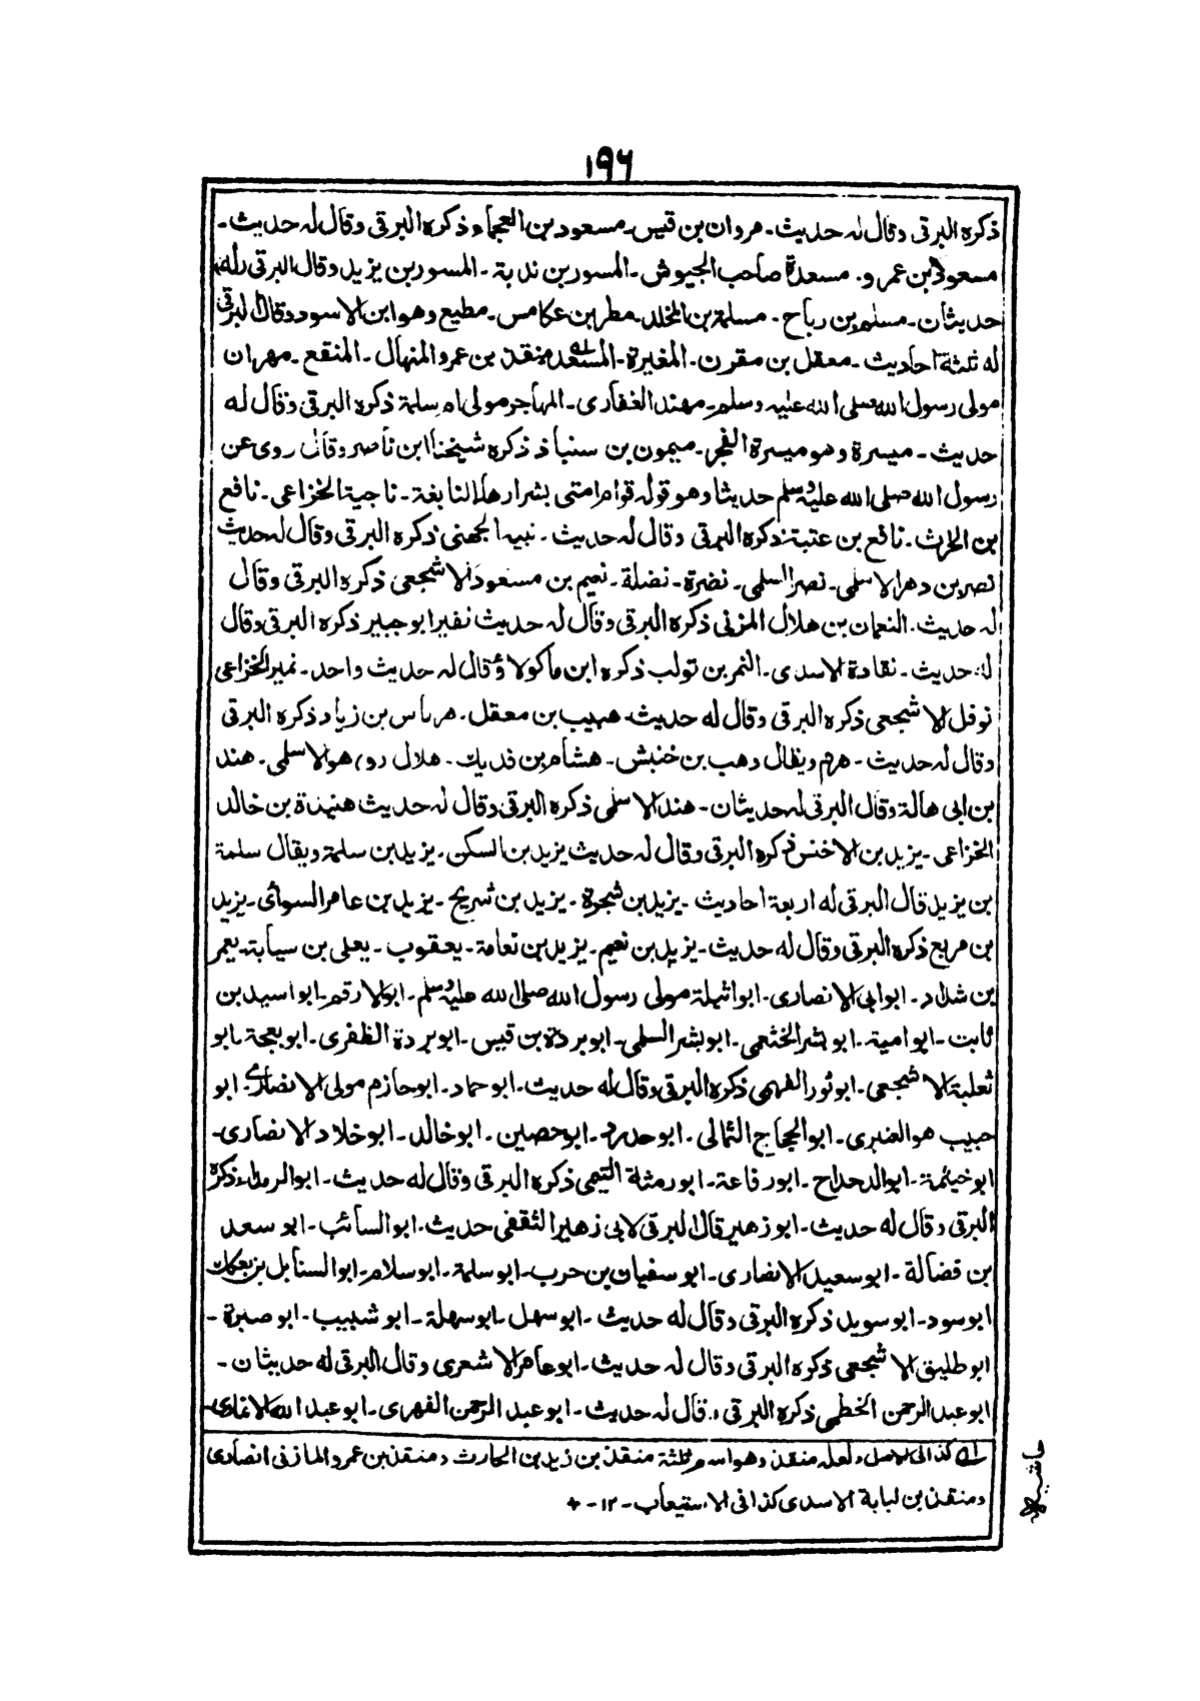 ۱۹۶
ذكره البرقى وقال له حديث۔ مروان بن قيس۔ مسعود بن العجماء ذكره البرقى وقال له حديث۔
مسعود بن عمرو۔ مسعدة صاحب الجيوش۔ المسور بن ندبة۔ المسور بن يزيد وقال البرقى له
حديثان۔ مسلم بن رباح۔ مسلمة بن المخلد۔ مطر بن عكامس۔ مطيع وهو ابن الاسود وقال البرقى
له ثلثة احاديث۔ معقل بن مقرن۔ المغيرة۔ المستعد منقذ بن عمرو المنهال۔ المنقع۔ مهران
مولى رسول الله صلى الله عليه وسلم۔ مهند الغفارى۔ المهاجر مولى ام سلمة ذكره البرقى وقال له
حديث۔ ميسرة وهو ميسرة الفجر۔ ميمون بن سنباذ ذكره شيخنا ابن ناصر وقال روى عن
رسول الله صلى الله عليه وسلم حديثا وهو قوله قوام امتى بشرارها النابغة۔ ناجية الخزاعى۔ نافع
بن الحرث۔ نافع بن عتبة ذكره البرقى وقال له حديث۔ نبيه الجهنى ذكره البرقى وقال له حديث
نصر بن دهر الاسلمى۔ نصر السلمى۔ نضرة۔ نضلة۔ نعيم بن مسعود الاشجعى ذكره البرقى وقال
له حديث۔ النعمان بن هلال المزنى ذكره البرقى وقال له حديث نفير ابو جبير ذكره البرقى وقال
له حديث۔ نقادة الاسدى۔ النمر بن تولب ذكره ابن ماكولا وقال له حديث واحد۔ نمير الخزاعى
نوفل الاشجعى ذكره البرقى وقال له حديث۔ هبيب بن معقل۔ هرماس بن زياد ذكره البرقى
وقال له حديث۔ هرم ويقال وهب بن خنبش۔ هشام بن فديك۔ هلال روى هو الاسلمى۔ هند
بن ابى هالة وقال البرقى له حديثان۔ هند الاسلمى ذكره البرقى وقال له حديث هنيدة بن خالد
الخزاعى۔ يزيد بن الاخنس ذكره البرقى وقال له حديث يزيد بن السكن۔ يزيد بن سلمة ويقال سلمة
بن يزيد قال البرقى له اربعة احاديث۔ يزيد بن شجرة۔ يزيد بن شريح۔ يزيد بن عامر السوائى۔ يزيد
بن مربع ذكره البرقى وقال له حديث۔ يزيد بن نعيم۔ يزيد بن نعامة۔ يعقوب۔ يعلى بن سيابة۔ يعمر
بن شداد۔ ابو ابى الانصارى۔ ابو اثيلة مولى رسول الله صلى الله عليه وسلم۔ ابو الارقم۔ ابو اسيد بن
ثابت۔ ابو امية۔ ابو بشر الخثعمى۔ ابو بشر السلمى۔ ابو بردة بن قيس۔ ابو بردة الظفرى۔ ابو بعجة۔ ابو
ثعلبة الاشجعى۔ ابو ثور الفهمى ذكره البرقى وقال له حديث۔ ابو حماد۔ ابو حازم مولى الانصارى۔ ابو
حبيب هو العنبرى۔ ابو الحجاج الثمالى۔ ابو حدرد۔ ابو حصين۔ ابو خالد۔ ابو خلاد الانصارى۔
ابو خيثمة۔ ابو الدحداح۔ ابو رفاعة۔ ابو رمثة التيمى ذكره البرقى وقال له حديث۔ ابو الرمداء ذكره
البرقى وقال له حديث۔ ابو زهير قال البرقى لابى زهير الثقفى حديث۔ ابو السائب۔ ابو سعد
بن فضالة۔ ابو سعيد الانصارى۔ ابو سفيان بن حرب۔ ابو سلمة۔ ابو سلام۔ ابو السنابل بن بعكك
ابو سود۔ ابو سويد ذكره البرقى وقال له حديث۔ ابو سهل۔ ابو سهلة۔ ابو شبيب۔ ابو صبرة۔
ابو طليق الاشجعى ذكره البرقى وقال له حديث۔ ابو عامر الاشعرى وقال البرقى له حديثان۔
ابو عبد الرحمن الخطمى ذكره البرقى وقال له حديث۔ ابو عبد الرحمن الفهرى۔ ابو عبد الله
ـه كذا فى الاصل ولعله منقذ وهو اسم ثلثة منقذ بن زيد بن الحارث ومنقذ بن عمرو المازنى انصارى
ومنقذ بن لبابة الاسدى كذا فى الاستيعاب۔ ۱۲۔ +
حاشيه